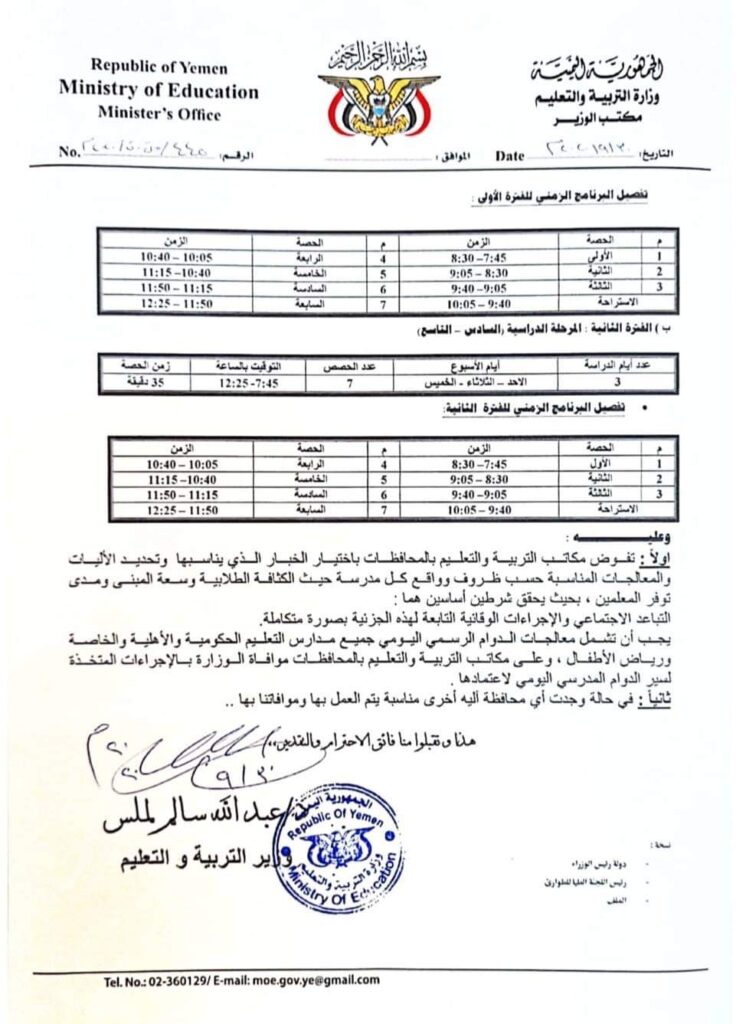 بسم الله الرحمن الرحيم
Republic of Yemen
Ministry of Education
Minister's Office
الجمهورية اليمنية
وزارة التربية والتعليم
مكتب الوزير
No. الرقم:
الموافق:
Date التاريخ:
تفصيل البرنامج الزمني للفترة الأولى :
م الحصة الزمن م الحصة الزمن
1 الأولي 7:45– 8:30 4 الرابعة 10:05 – 10:40
2 الثانية 8:30 – 9:05 5 الخامسة 10:40– 11:15
3 الثالثة 9:05– 9:40 6 السادسة 11:15 – 11:50
الاستراحة 9:40 – 10:05 7 السابعة 11:50 – 12:25
ب ) الفترة الثانية : المرحلة الدراسية (السادس – التاسع)
عدد أيام الدراسة أيام الأسبوع عدد الحصص التوقيت بالساعة زمن الحصة
3 الاحد – الثلاثاء - الخميس 7 7:45- 12:25 35 دقيقة
• تفصيل البرنامج الزمني للفترة الثانية:
م الحصة الزمن م الحصة الزمن
1 الأول 7:45– 8:30 4 الرابعة 10:05 – 10:40
2 الثانية 8:30 – 9:05 5 الخامسة 10:40– 11:15
3 الثالثة 9:05– 9:40 6 السادسة 11:15 – 11:50
الاستراحة 9:40 – 10:05 7 السابعة 11:50 – 12:25
وعليـــــه :
اولاً : تفوض مكاتب التربية والتعليم بالمحافظات باختيار الخيار الذي يناسبها وتحديد الأليات
والمعالجات المناسبة حسب ظروف وواقع كل مدرسة حيث الكثافة الطلابية وسعة المبنى ومدى
توفر المعلمين ، بحيث يحقق شرطين أساسين هما :
التباعد الاجتماعي والإجراءات الوقائية التابعة لهذه الجزئية بصورة متكاملة.
يجب أن تشمل معالجات الدوام الرسمي اليومي جميع مدارس التعليم الحكومية والأهلية والخاصة
ورياض الأطفال ، وعلى مكاتب التربية والتعليم بالمحافظات موافاة الوزارة بالإجراءات المتخذة
لسير الدوام المدرسي اليومي لاعتمادها .
ثانياً : في حالة وجدت أي محافظة أليه أخرى مناسبة يتم العمل بها وموافاتنا بها ..
هذا وتقبلوا منا فائق الاحترام والتقدير،،
د/ عبد الله سالم لملس
وزير التربية و التعليم
الجمهورية اليمنية
Republic Of Yemen
وزارة التربية والتعليم
Ministry Of Education
نسخة :
- دولة رئيس الوزراء
- رئيس اللجنة العليا للطوارئ
- الملف
Tel. No.: 02-360129/ E-mail: moe.gov.ye@gmail.com